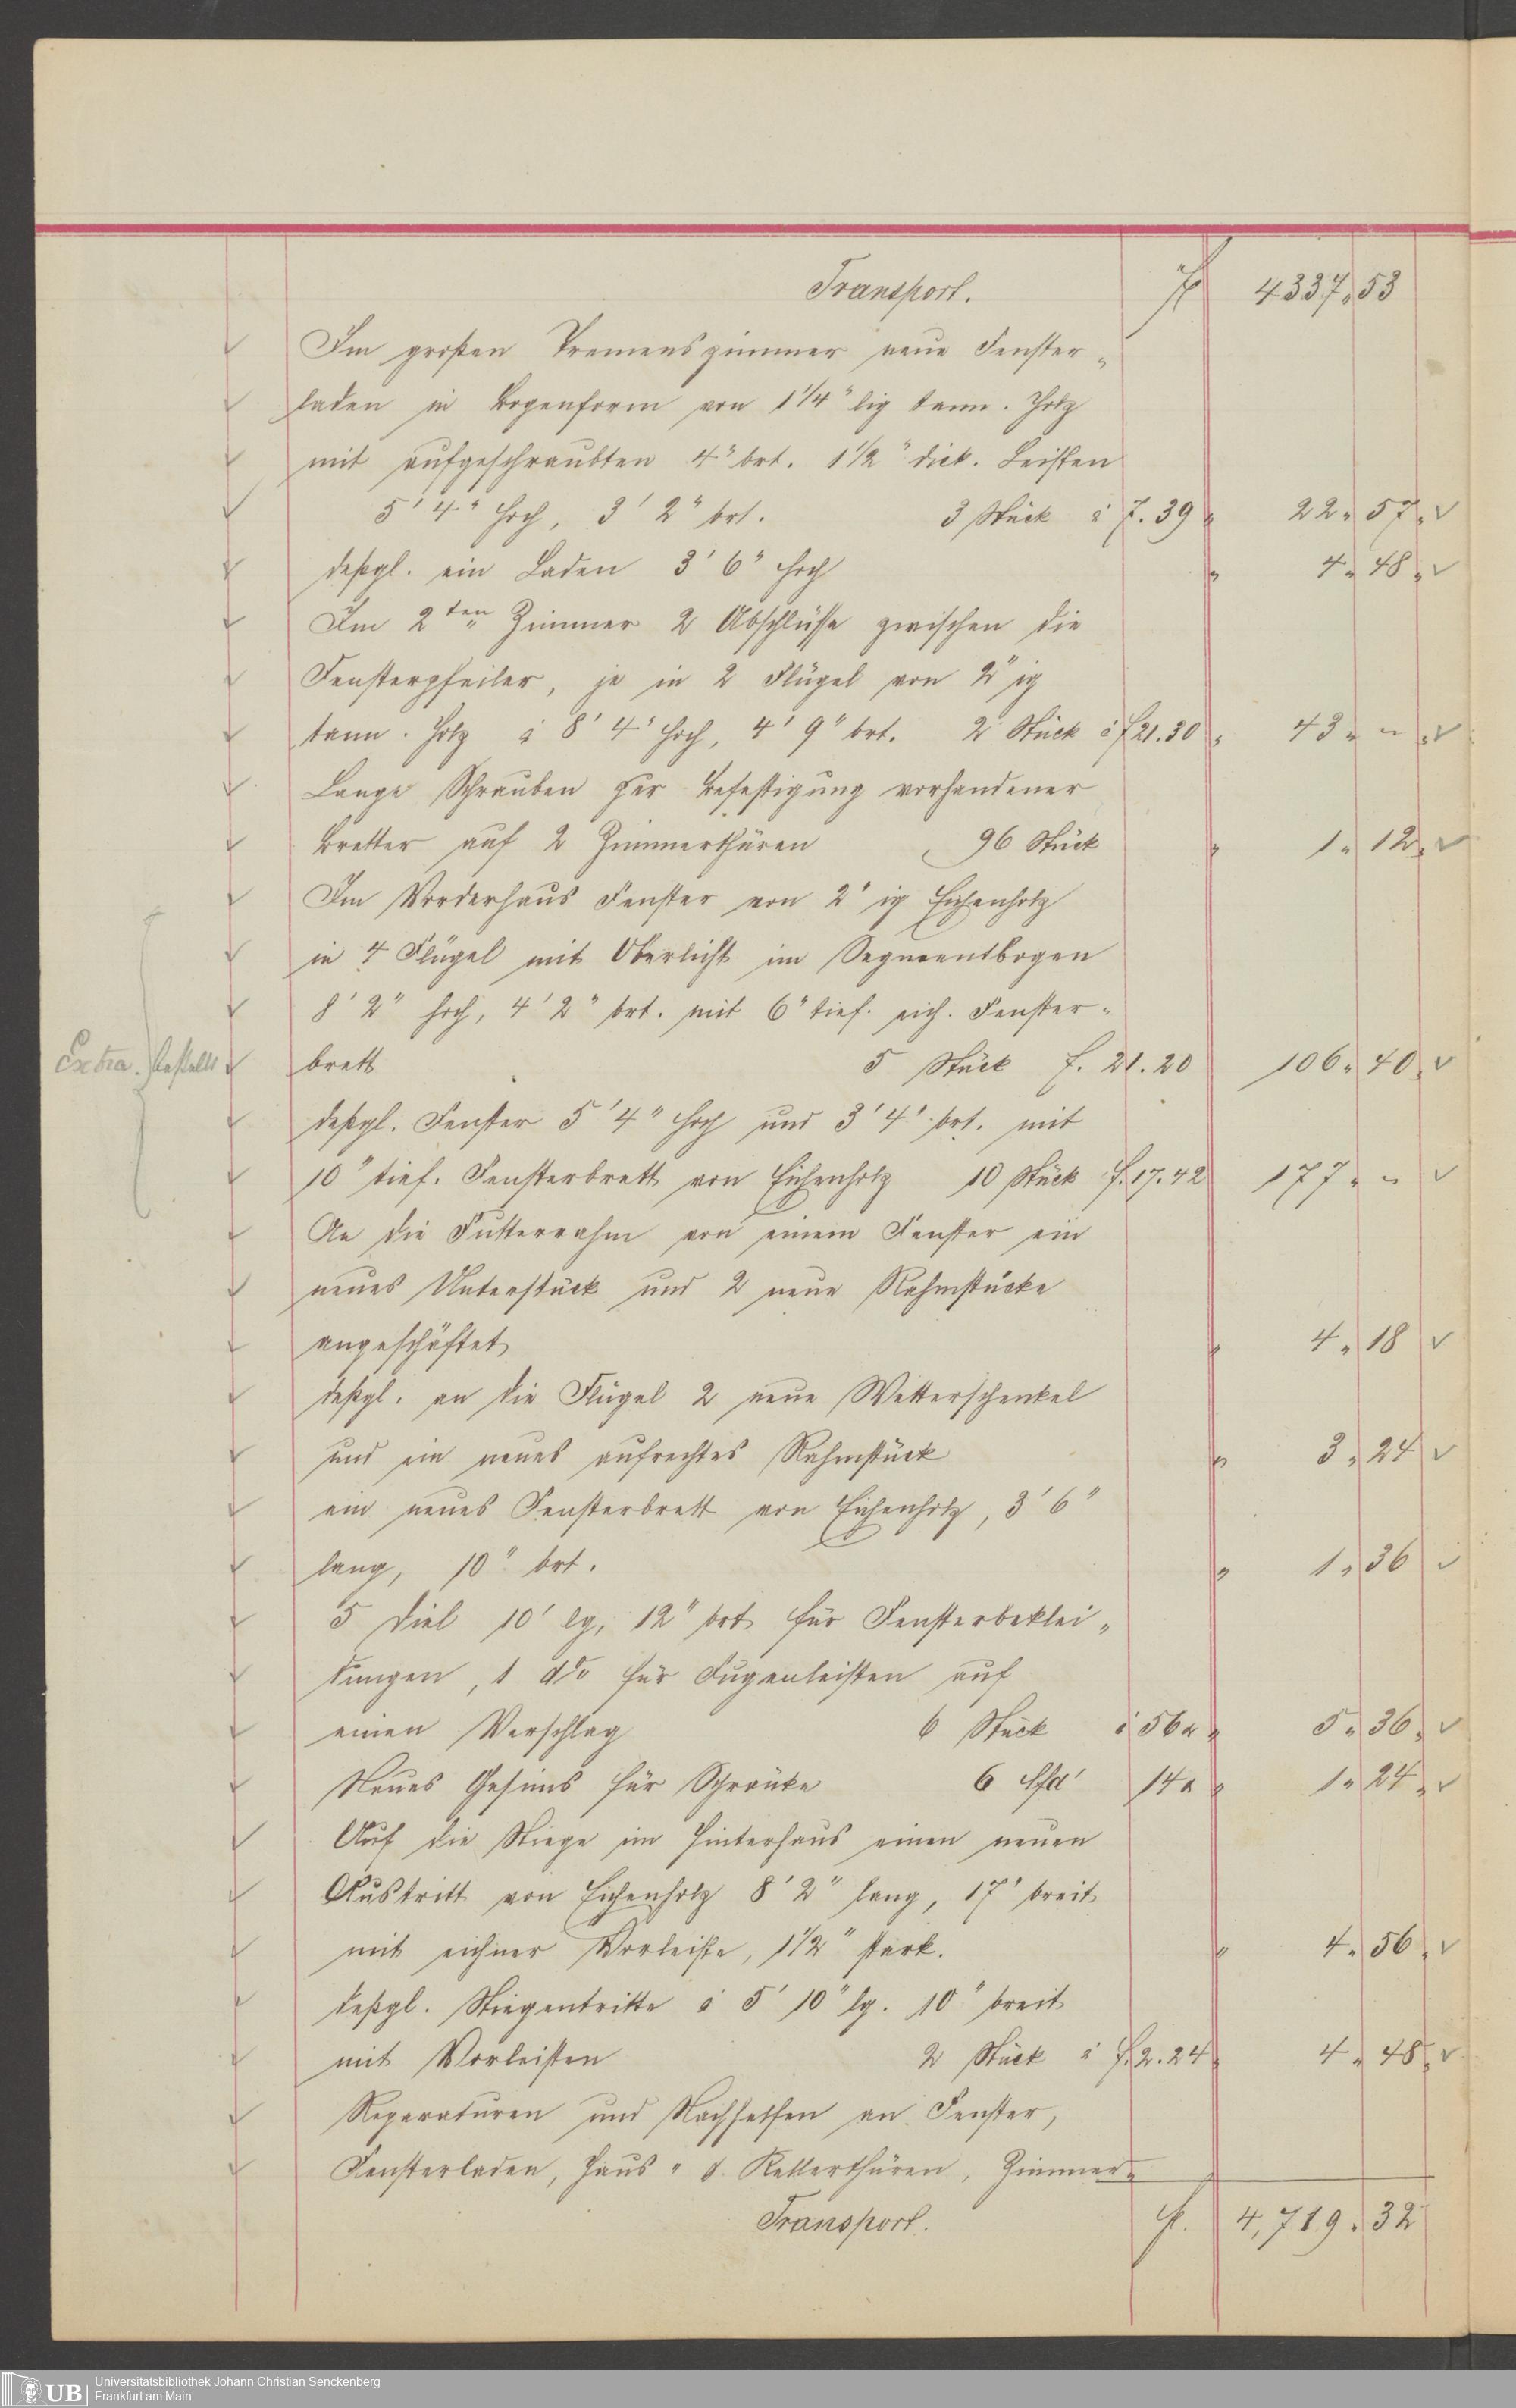 Transport. f 4337 " 53
Im großen Tremenszimmer neue Fenster-
laden in Bogenform von 1 1/4" lig tann. Holz
mit aufgeschraubten 4" brt. 1 1/2" dick. Leisten
5' 4" hoch, 3' 2" brt. 3 Stück à 7. 39 " 22 " 57 " v
deßgl. ein Laden 3' 6" hoch " 4 " 48 " v
Im 2ten Zimmer 2 Abschlüsse zwischen die
Fensterpfeiler, je in 2 Flügel von 2" ig
tann. Holz à 8' 4" hoch, 4' 9" brt. 2 Stück à f 21. 30 " 43 " " " v
Lange Schrauben zur Befestigung vorhandener
Bretter auf 2 Zimmerthüren 96 Stück " 1 " 12 " v
Im Vorderhaus Fenster von 2" ig Eichenholz
in 4 Flügel mit Oberlicht im Segmentbogen
8' 2" hoch, 4' 2" brt. mit 6" tief. eich. Fenster-
Extra. bestellt
brett 5 Stück f. 21. 20 106 " 40 " v
deßgl. Fenster 5' 4" hoch und 3' 4" brt. mit
10" tief. Fensterbrett von Eichenholz 10 Stück f. 17. 42 177 " " v
An die Futterrahm von einem Fenster ein
neues Unterstück und 2 neue Rahmstücke
angeschäftet " 4 " 18 v
deßgl. an die Flügel 2 neue Wetterschenkel
und ein neues aufrechtes Rahmstück " 3 " 24 v
ein neues Fensterbrett von Eichenholz, 3' 6"
lang, 10" brt. " 1 " 36 v
5 Diel 10' lg, 12" brt für Fensterbeklei-
dungen, 1 do für Fugenleisten auf
einen Verschlag 6 Stück à 56 " " 5 " 36 " v
Neues Gesims für Schränke 6 lfd' 14 " " 1 " 24 " v
Auf die Stiege im Hinterhaus einen neuen
Austritt von Eichenholz 8' 2" lang, 17" breit
mit eichner Vorleiste, 1 1/2" stark. " 4 " 56 " v
deßgl. Stiegentritte à 5' 10" lg. 10" breit
mit Vorleisten 2 Stück à f. 2. 24 " 4 " 48 " v
Reparaturen und Nachhelfen an Fenster,
Fensterladen, Haus " d. Kellerthüren, Zimmer-
Transport. f. 4,719 " 32
UB Universitätsbibliothek Johann Christian Senckenberg
Frankfurt am Main